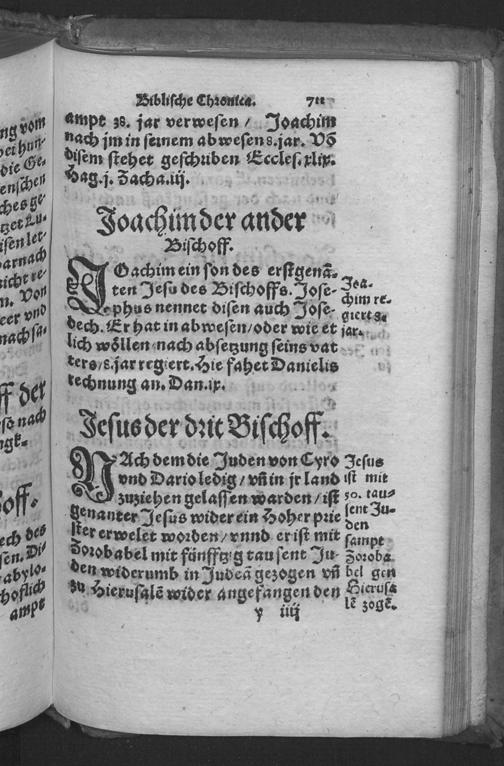 Biblische Chronica. 711
ampt 38. jar verwesen / Joachim
nach jm in seinem abwesen 8. jar. Võ
disem stehet geschriben Eccles. xlix.
Hag. j. Zacha. iij.
Joachim der ander
Bischoff.
JOachim ein son des erstgenã-
ten Jesu des Bischoffs. Jose-
phus nennet disen auch Jose-
dech. Er hat in abwesen / oder wie et
lich wöllen nach absetzung seins vat
ters / 8. jar regiert. Hie fahet Danielis
rechnung an. Dan. ix.
Joa-
chim re-
giert 8.
jar.
Jesus der drit Bischoff.
NAch dem die Juden von Cyro
vnd Dario ledig / vñ in jr land
zuziehen gelassen warden / ist
genanter Jesus wider ein Hoher prie
ster erwelet worden / vnnd er ist mit
Zorobabel mit fünfftzig tausent Ju-
den widerumb in Judeã gezogen vñ
zu Hierusalẽ wider angefangen den
Jesus
ist mit
50. tau-
sent Ju-
den
sampt
Zoroba
bel gen
Hierusa
lẽ zogẽ.
y iiij
ng vom
die Ge-
enschen
ches ge-
tzet Lu-
isen let-
arnach
n. Von
eer vnd
nach sa-
ff der
so nach
ngk-
off.
ech des
sen. Di
abylo-
hoflich
ampt